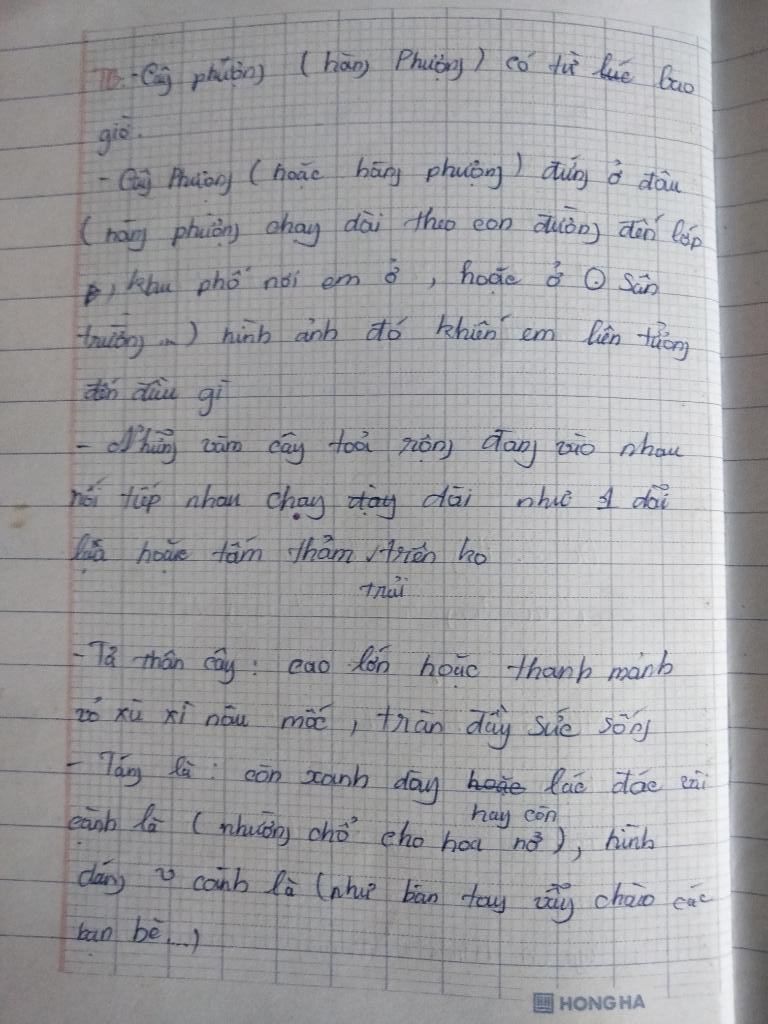 TB. - Cây phượng (hàng Phượng) có từ lúc bao
giờ.
- Cây Phượng (hoặc hàng phượng) đứng ở đâu
(hàng phượng chạy dài theo con đường đến lớp
, khu phố nơi em ở, hoặc ở sân
trường...) hình ảnh đó khiến em liên tưởng
đến điều gì
- Những vòm cây toả rộng đang vào nhau
nối tiếp nhau chạy dài như 1 dải
lụa hoặc tấm thảm trên ko
trải
- Tả thân cây: cao lớn hoặc thanh mảnh
vỏ xù xì nâu mốc, tràn đầy sức sống
- Tán lá: còn xanh dày hoặc lác đác vài
hay còn
cành lá (nhường chỗ cho hoa nở), hình
dáng cành lá (như bàn tay vẫy chào các
bạn bè...)
HONG HA